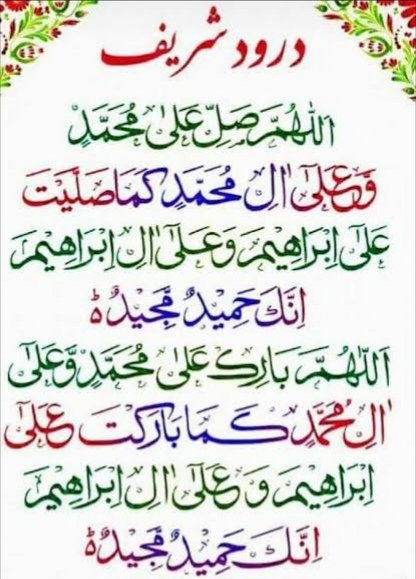 درود شریف
اَللّٰهُمَّ صَلِّ عَلٰی مُحَمَّدٍ
وَّعَلٰٓی اٰلِ مُحَمَّدٍ کَمَا صَلَّیْتَ
عَلٰٓی اِبْرَاهِیْمَ وَعَلٰٓی اٰلِ اِبْرَاهِیْمَ
اِنَّکَ حَمِیْدٌ مَّجِیْدٌ ؕ
اَللّٰهُمَّ بَارِکْ عَلٰی مُحَمَّدٍ وَّعَلٰٓی
اٰلِ مُحَمَّدٍ کَمَا بَارَکْتَ عَلٰٓی
اِبْرَاهِیْمَ وَعَلٰٓی اٰلِ اِبْرَاهِیْمَ
اِنَّکَ حَمِیْدٌ مَّجِیْدٌ ؕ